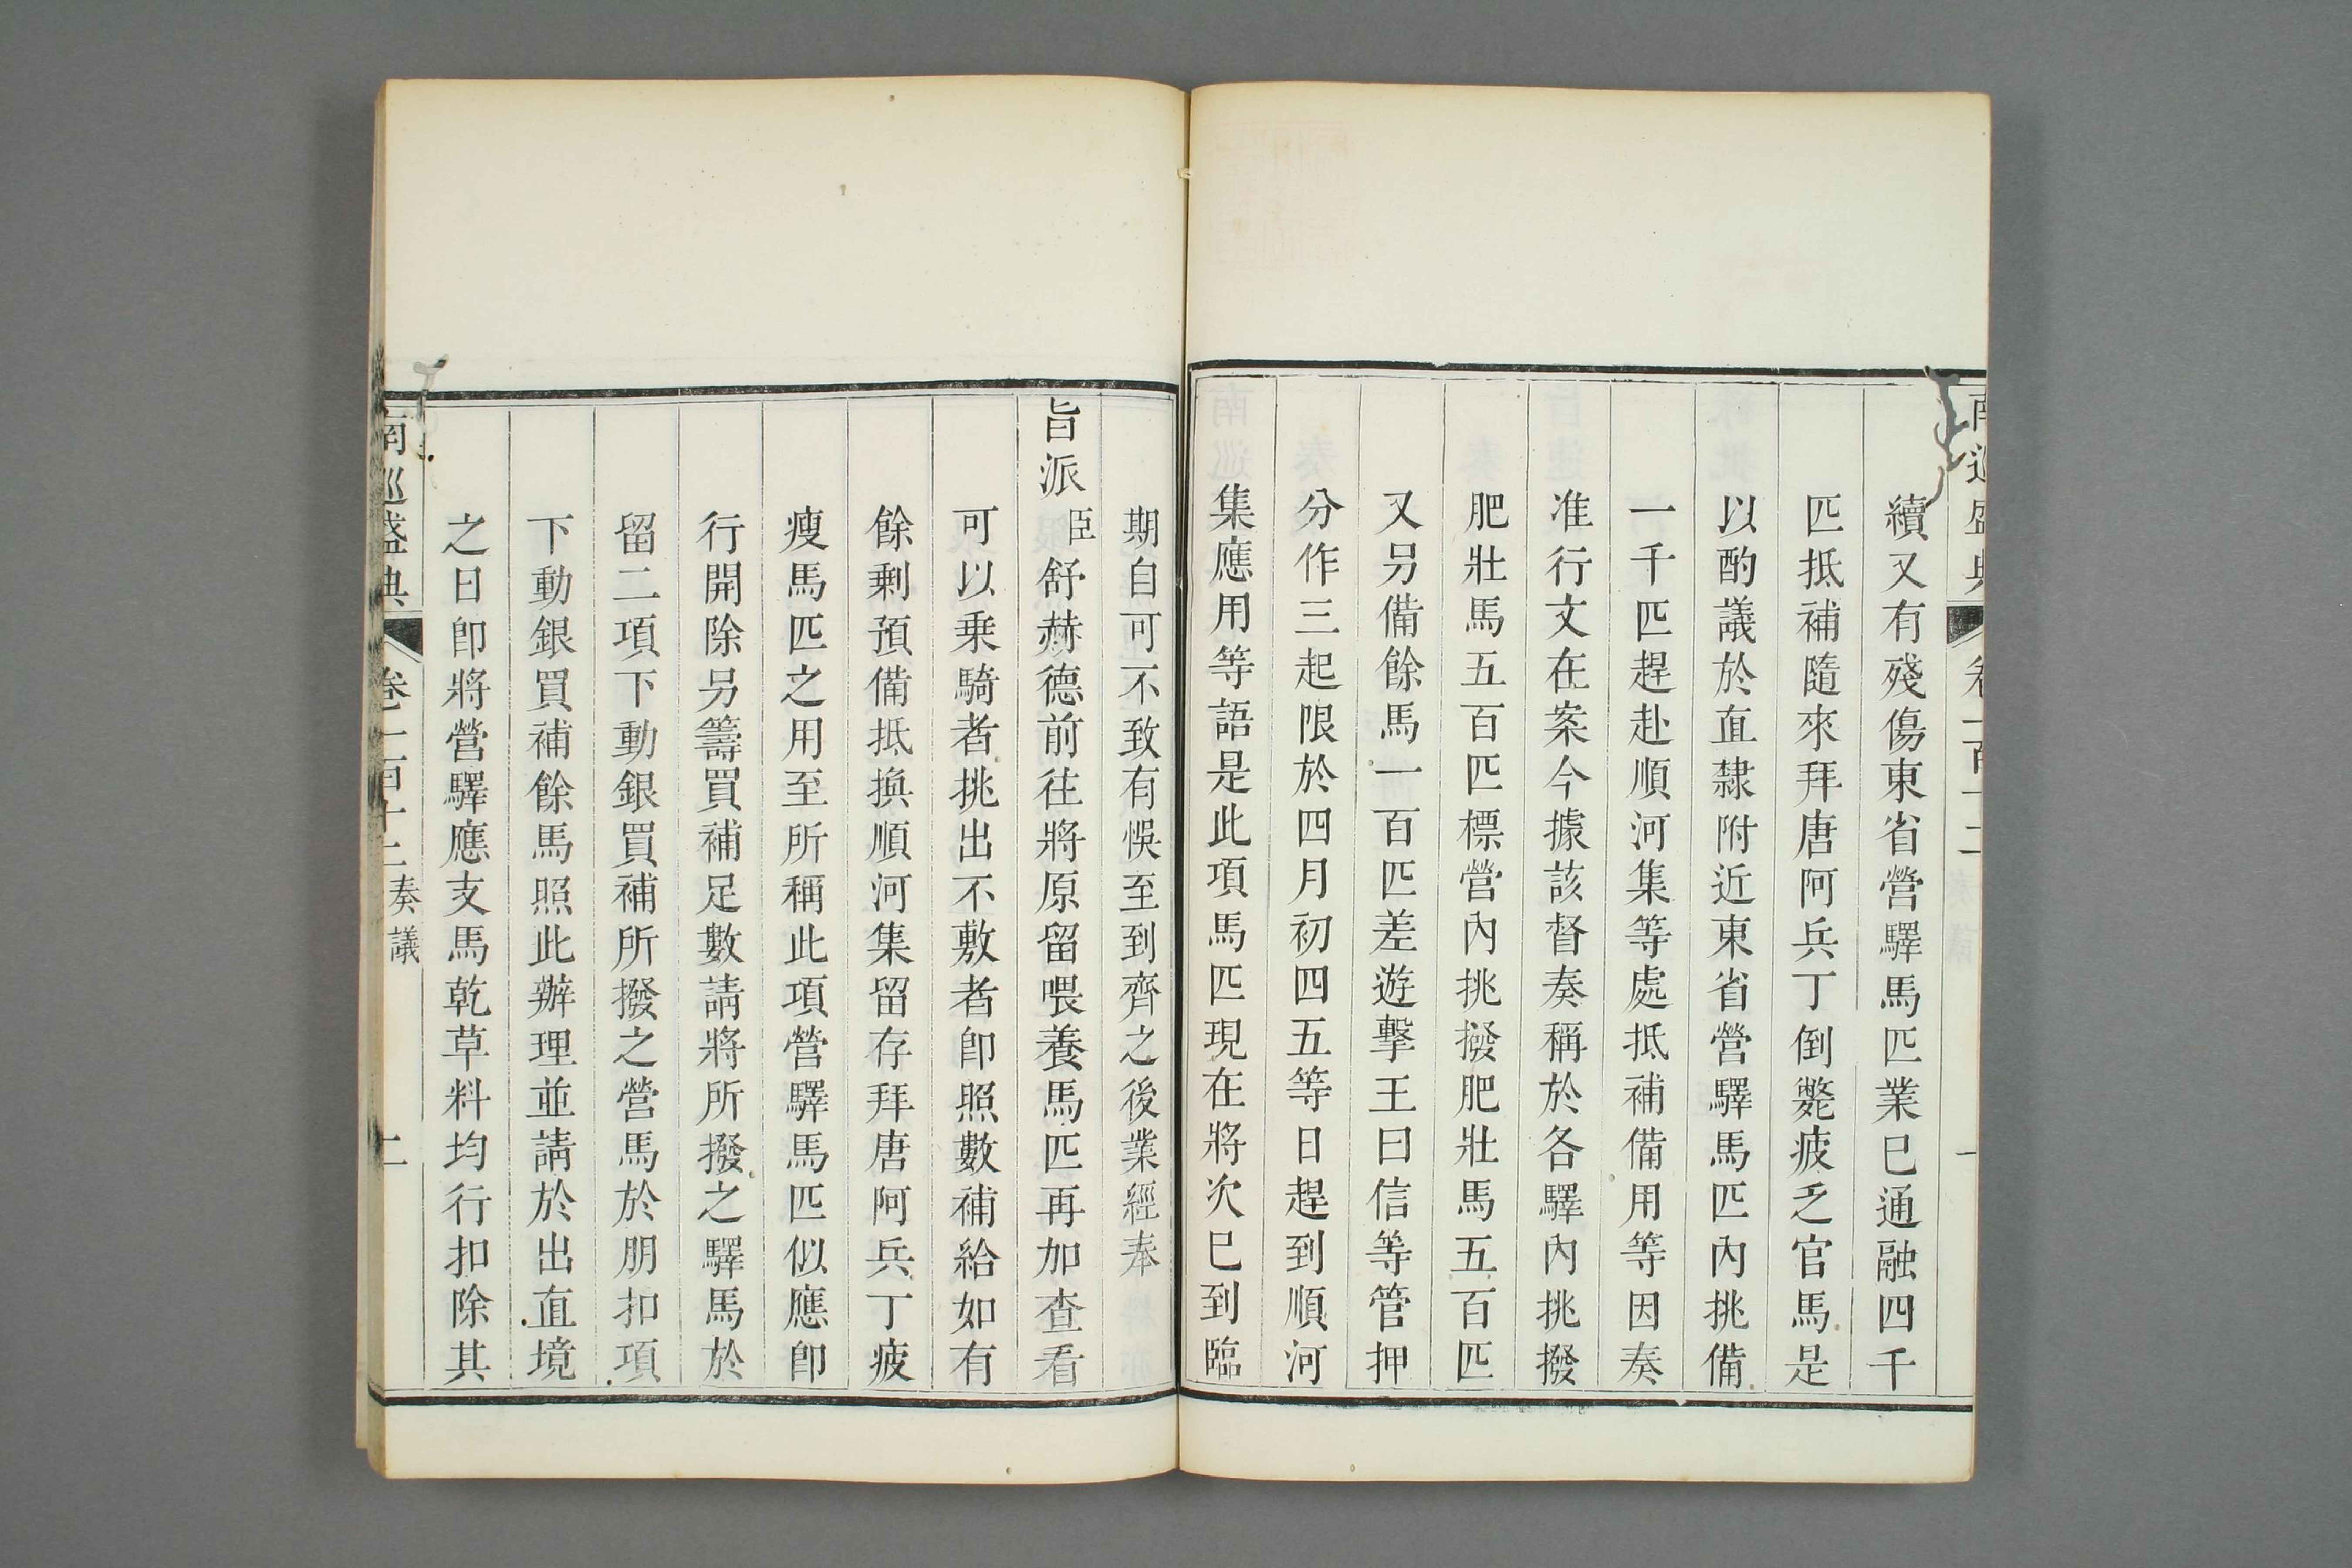 南巡盛典 卷一百十二 一
續又有殘傷東省營驛馬匹業已通融四千
匹抵補隨來拜唐阿兵丁倒斃疲乏官馬是
以酌議於直隸附近東省營驛馬匹內挑備
一千匹趕赴順河集等處抵補備用等因奏
准行文在案今據該督奏稱於各驛內挑撥
肥壯馬五百匹標營內挑撥肥壯馬五百匹
又另備餘馬一百匹差遊擊王曰信等管押
分作三起限於四月初四五等日趕到順河
集應用等語是此項馬匹現在將次已到臨
期自可不致有悞至到齊之後業經奉
旨派臣舒赫德前往將原留喂養馬匹再加查看
可以乗騎者挑出不敷者卽照數補給如有
餘剩預備抵換順河集留存拜唐阿兵丁疲
瘦馬匹之用至所稱此項營驛馬匹似應卽
行開除另籌買補足數請將所撥之驛馬於
留二項下動銀買補所撥之營馬於朋扣項
下動銀買補餘馬照此辦理並請於出直境
之日卽將營驛應支馬乾草料均行扣除其
南巡盛典 卷一百十二 奏議 二